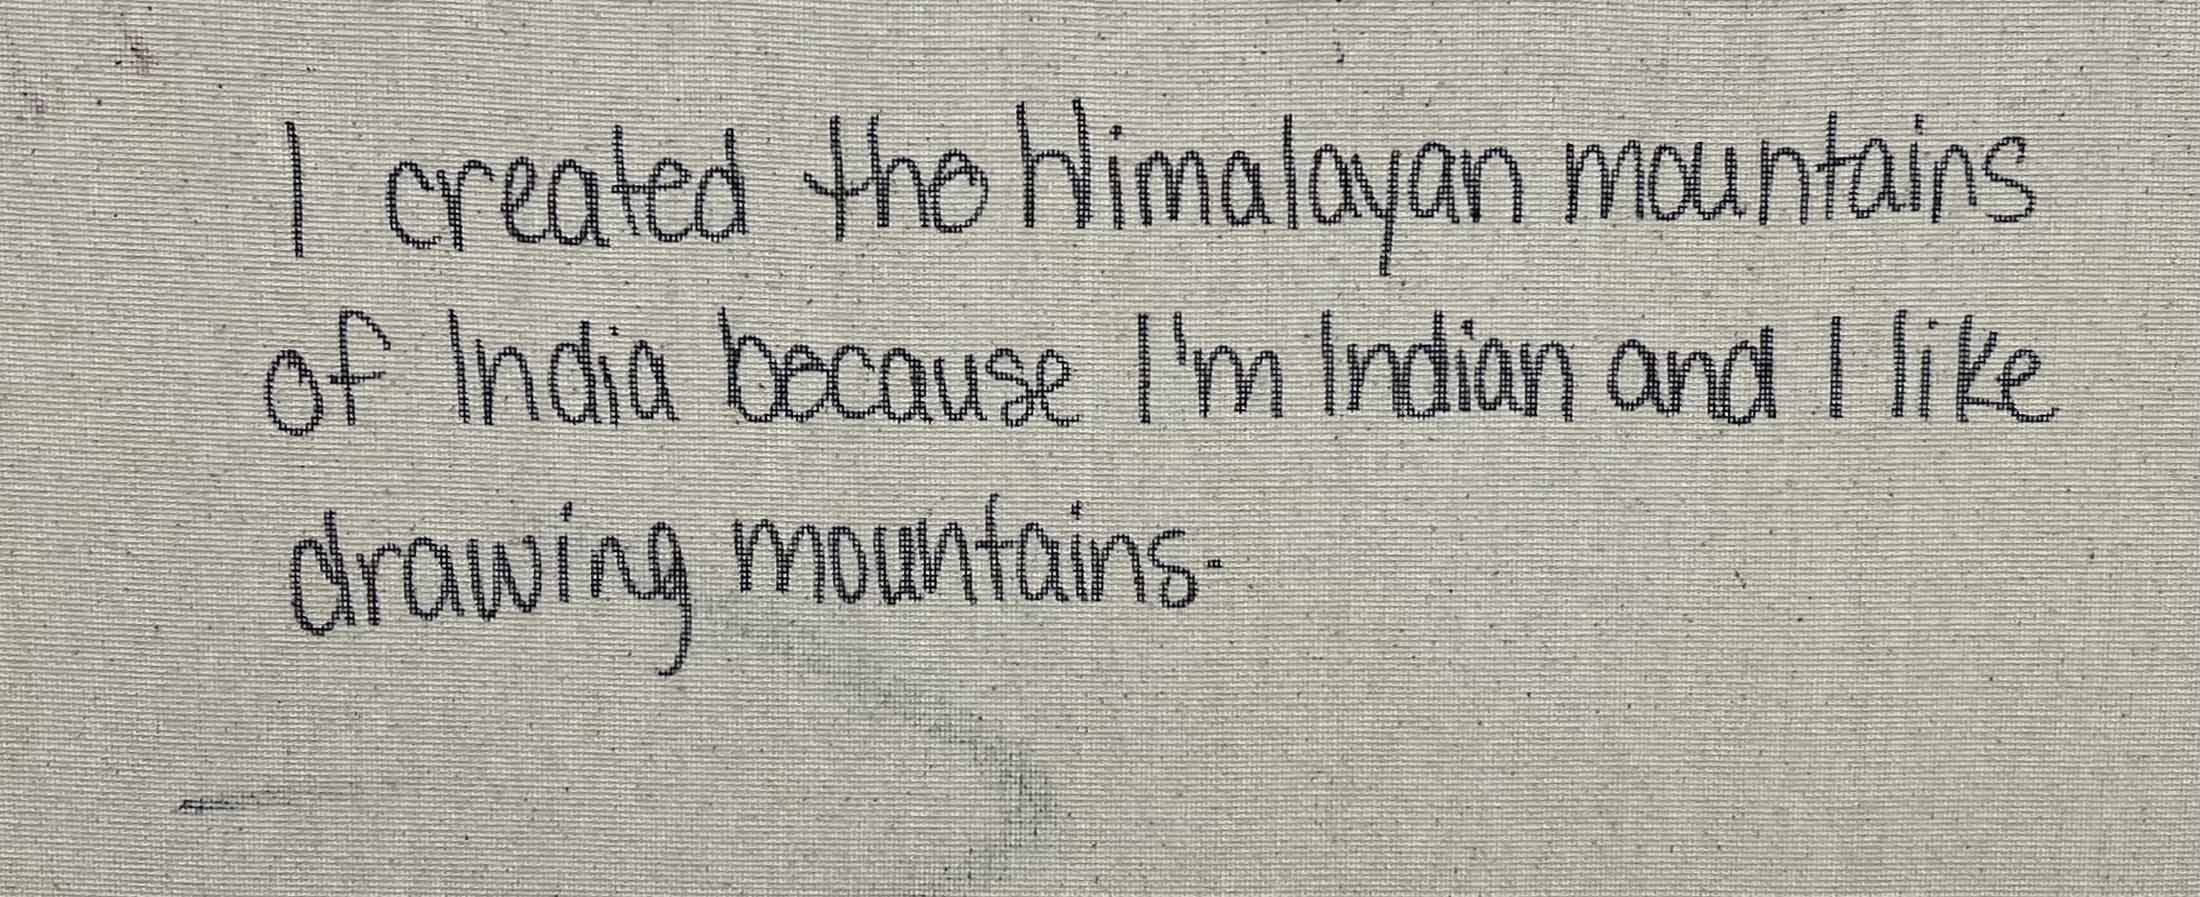 I created the Himalayan mountains
of India because I'm Indian and I like
drawing mountains.